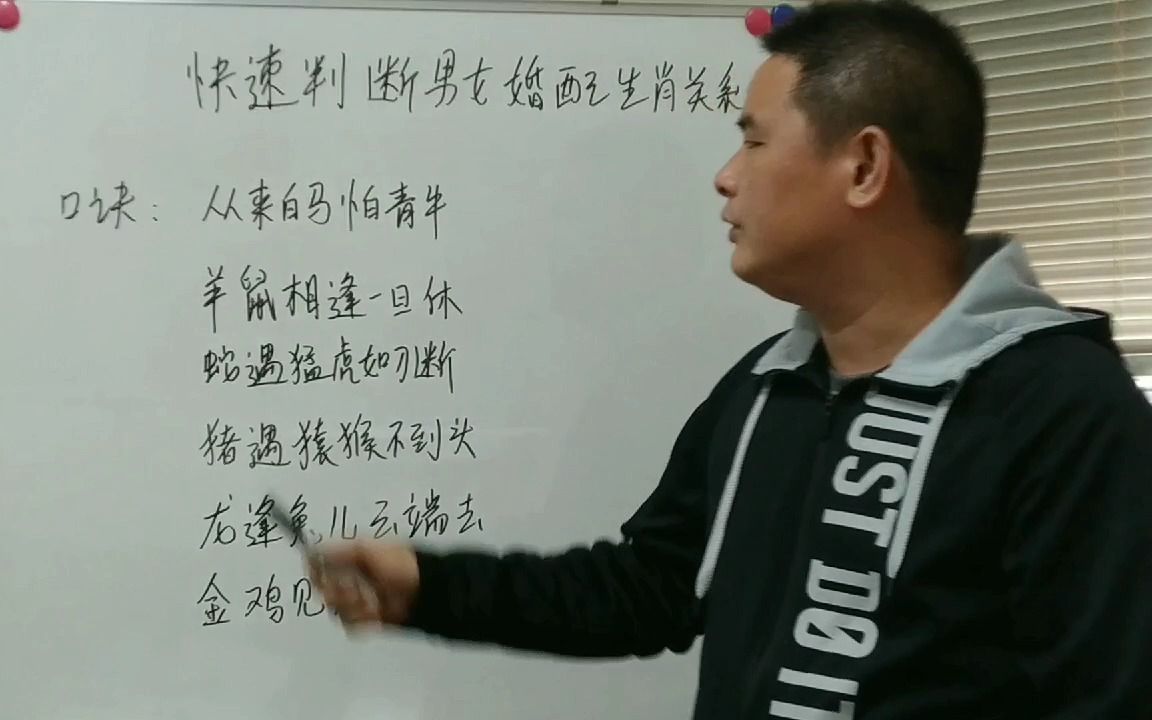 快速判断男女婚配生肖关系
口诀：从来白马怕青牛
羊鼠相逢一旦休
蛇遇猛虎如刀断
猪遇猿猴不到头
龙逢兔儿云端去
金鸡见
JUST DO IT